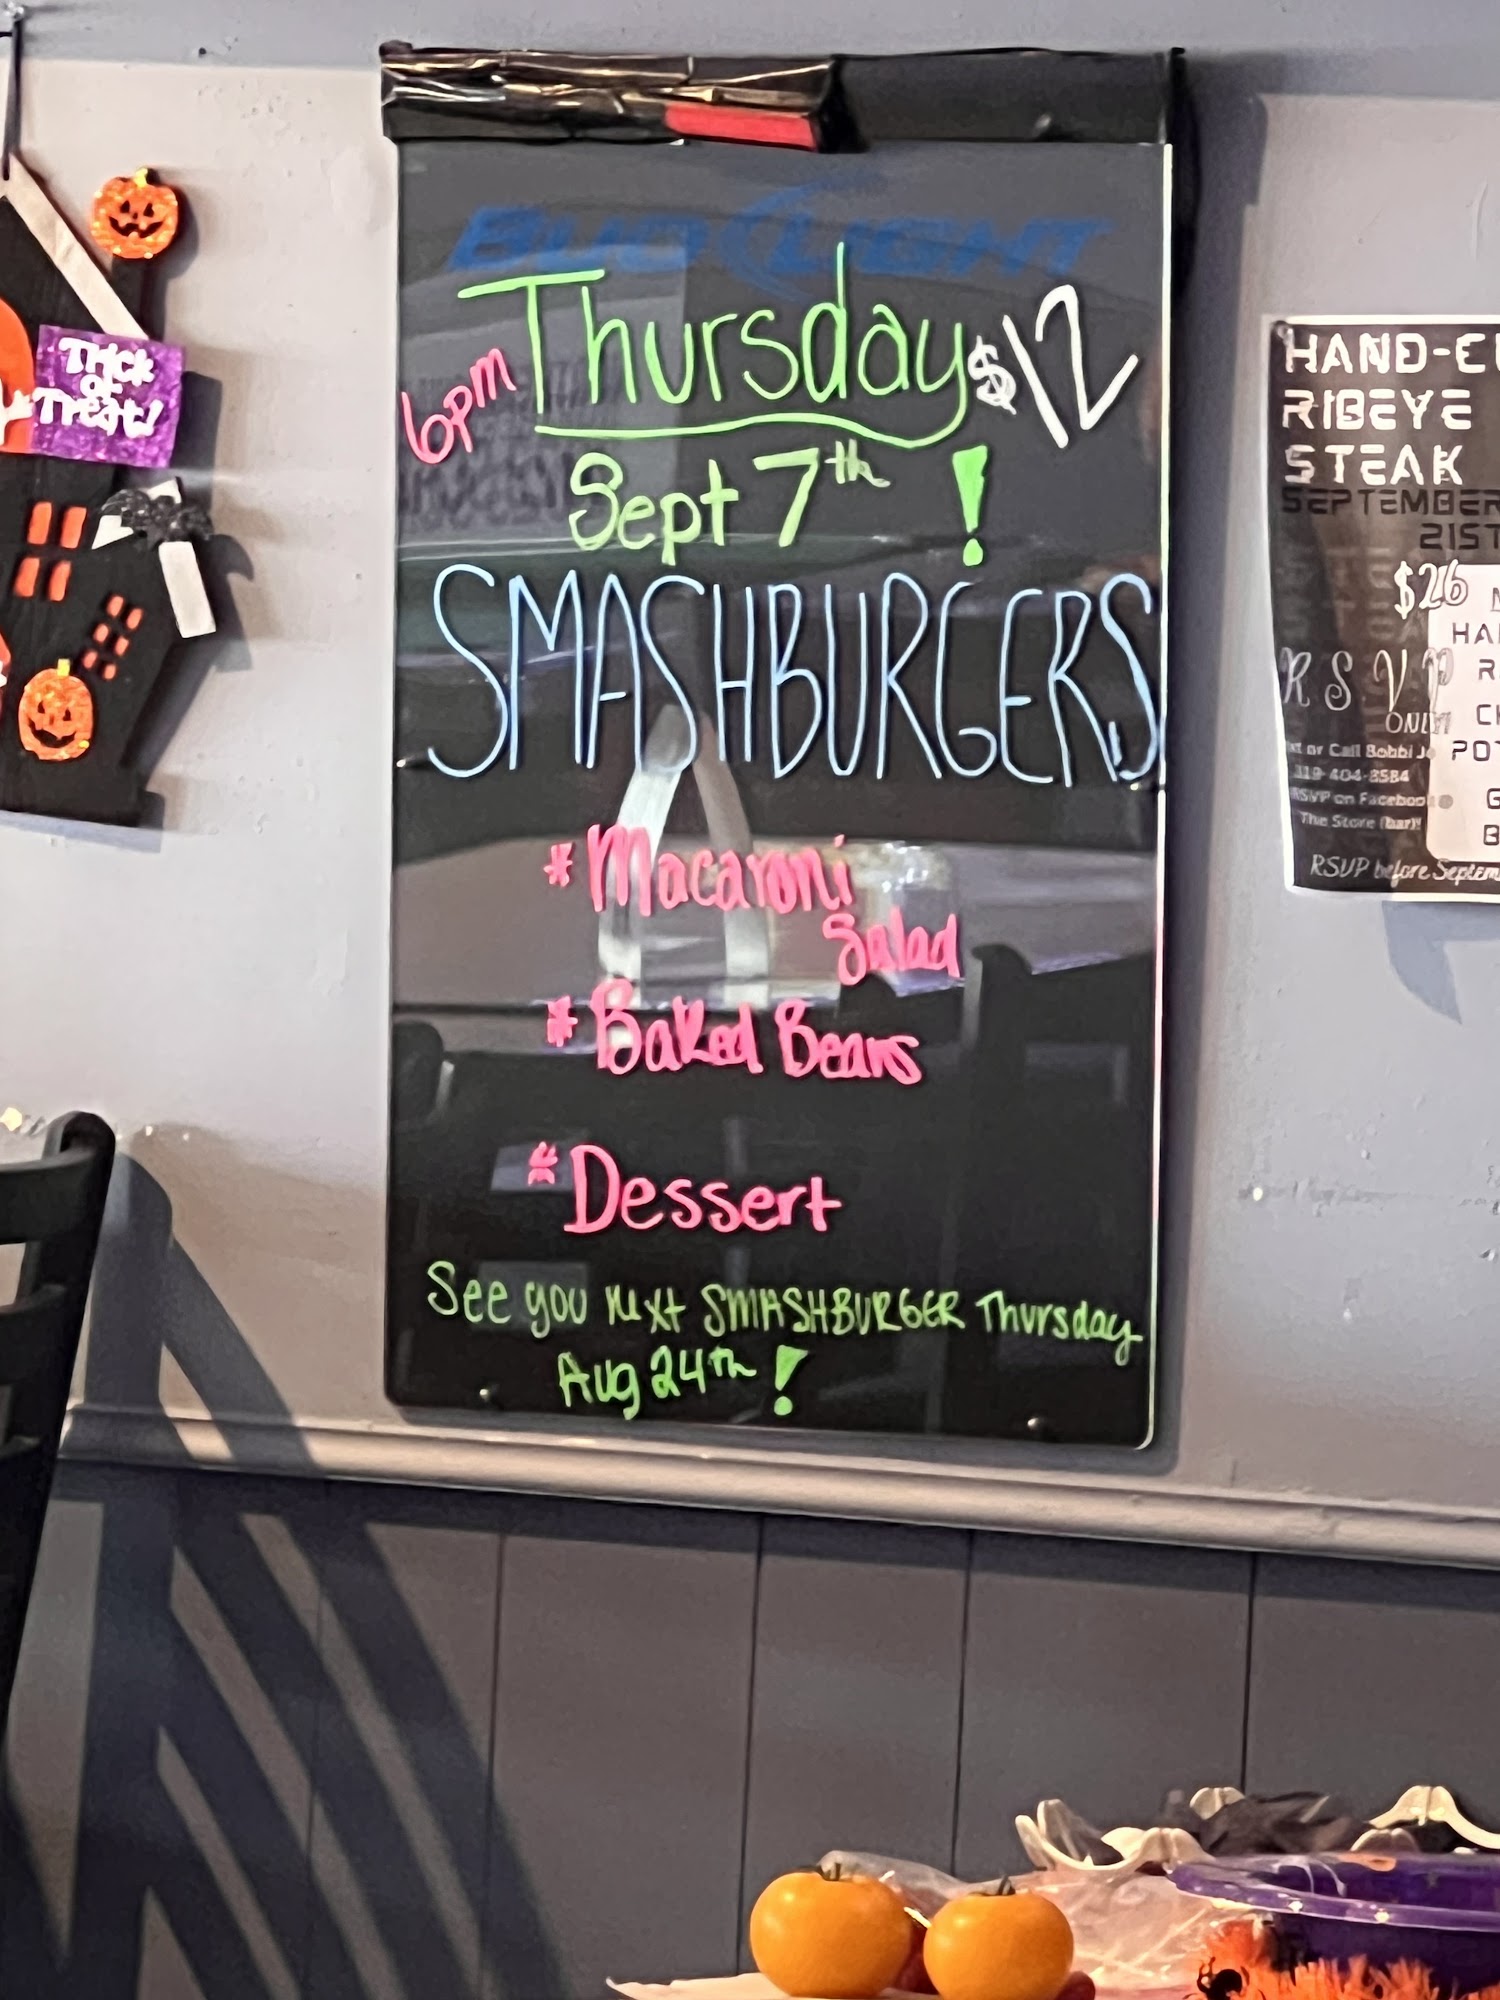 Trick
or
Treat!
BUD LIGHT
Thursday
6pm
$12
Sept 7th !
SMASHBURGERS
* Macaroni
Salad
* Baked Beans
* Dessert
See you next SMASHBURGER Thursday
Aug 24th !
RIBEYE
STEAK
SEPTEMBER
21ST
$26
R S V P
ONLY!
or Call Bobbi Jo
319-404-8584
RSVP on Facebook
The Store (bar)!
RSVP before